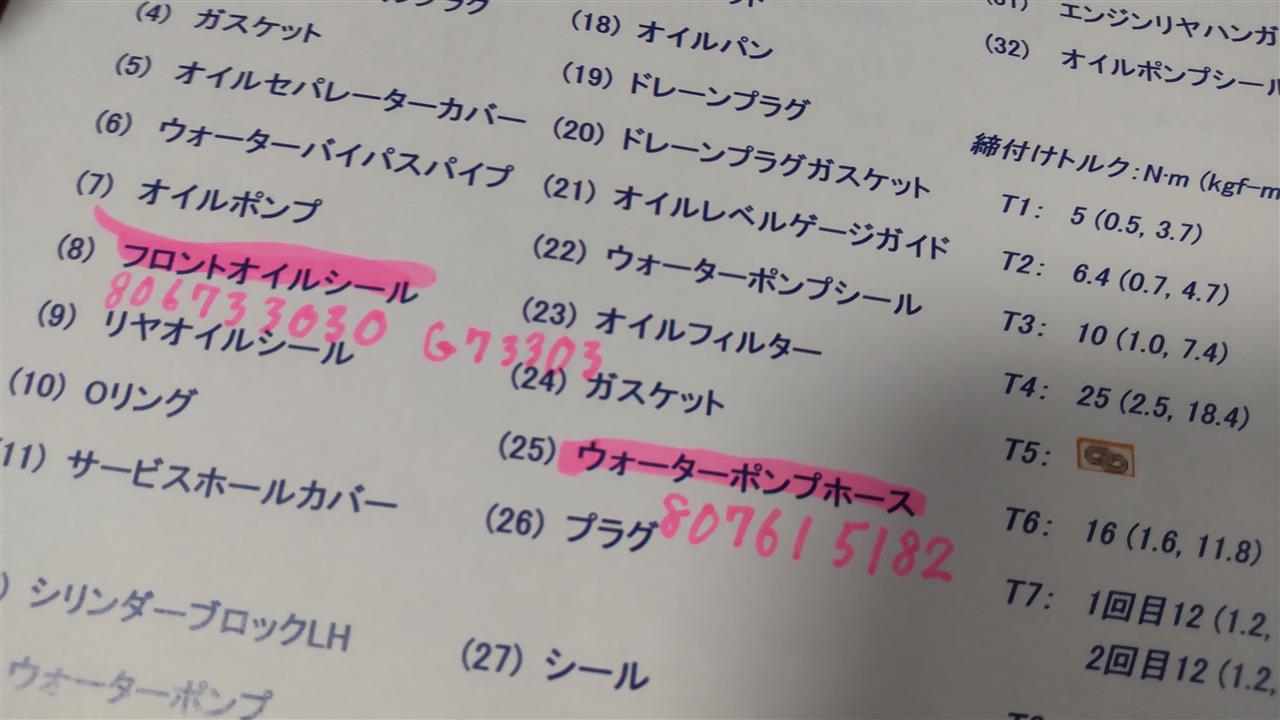 (4) ガスケット
(5) オイルセパレーターカバー
(6) ウォーターバイパスパイプ
(7) オイルポンプ
(8) フロントオイルシール
806733030 G73303
(9) リヤオイルシール
(10) Oリング
11) サービスホールカバー
シリンダーブロックLH
ウォーターポンプ
(18) オイルパン
(19) ドレーンプラグ
(20) ドレーンプラグガスケット
(21) オイルレベルゲージガイド
(22) ウォーターポンプシール
(23) オイルフィルター
(24) ガスケット
(25) ウォーターポンプホース
807615182
(26) プラグ
(27) シール
(31) エンジンリヤハンガ
(32) オイルポンプシール
締付けトルク:N·m (kgf-m
T1: 5 (0.5, 3.7)
T2: 6.4 (0.7, 4.7)
T3: 10 (1.0, 7.4)
T4: 25 (2.5, 18.4)
T5:
T6: 16 (1.6, 11.8)
T7: 1回目12 (1.2,
2回目12 (1.2,